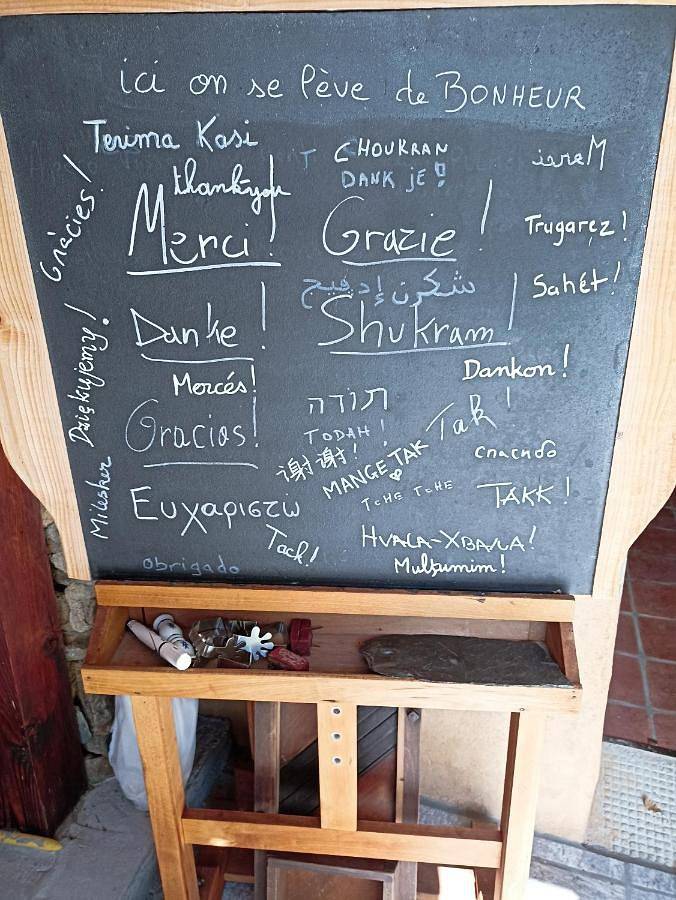 ici on se lève de BONHEUR
Terima Kasi
CHOUKRAN
DANK JE !
Marsi
Gràcies !
thankyou
Merci !
Grazie !
Trugarez !
شكرن إدفيج
Sahét !
Danke !
Shukram !
Dankon !
Dziękujemy !
Mercés !
תודה
TODAH !
Gracias !
Tak !
谢谢 !
MANGE TAK
спасибо
TCHE TCHE
TAKK !
Milesker
Ευχαριστώ
Tack !
HVALA - ХВАЛА !
obrigado
Mulţumim !